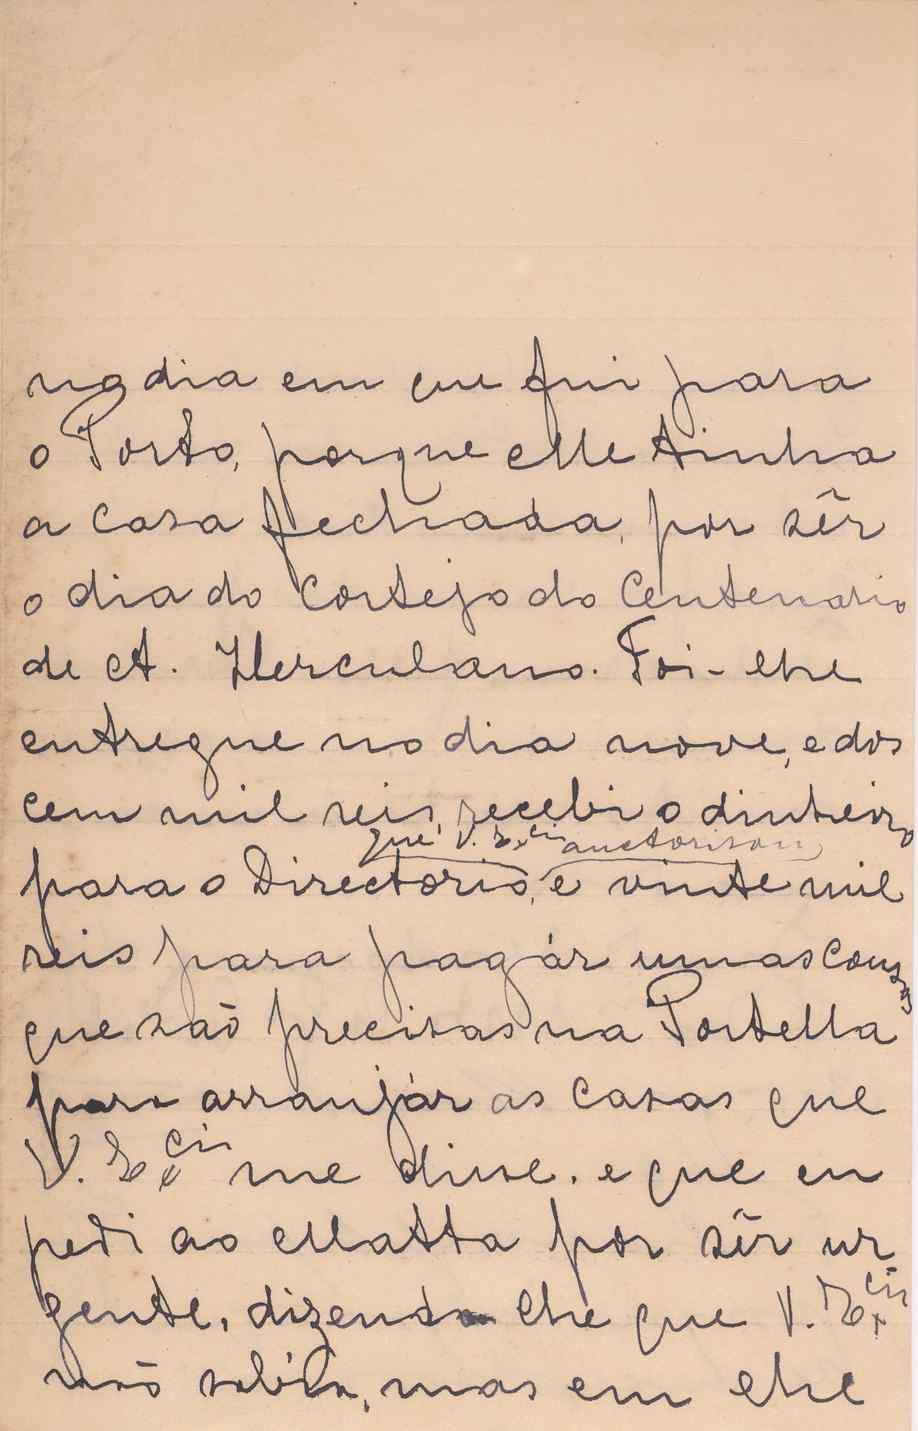 no dia em que fui para
o Porto, porque elle tinha
a casa fechada, por sêr
o dia do cortejo do Centenario
de A. Herculano. Foi-lhe
entregue no dia nove, e dos
cem mil reis, recebi o dinheiro
que V. Ex.cia auctorisou
para o Directorio, e vinte mil
reis para pagár umas cousas
que são precisas na Portella
para arranjár as casas que
V. Ex.cia me disse. e que eu
pedi ao Matta por sêr ur
gente, dizendo lhe que V. Ex.cia
não sabía, mas em lhe